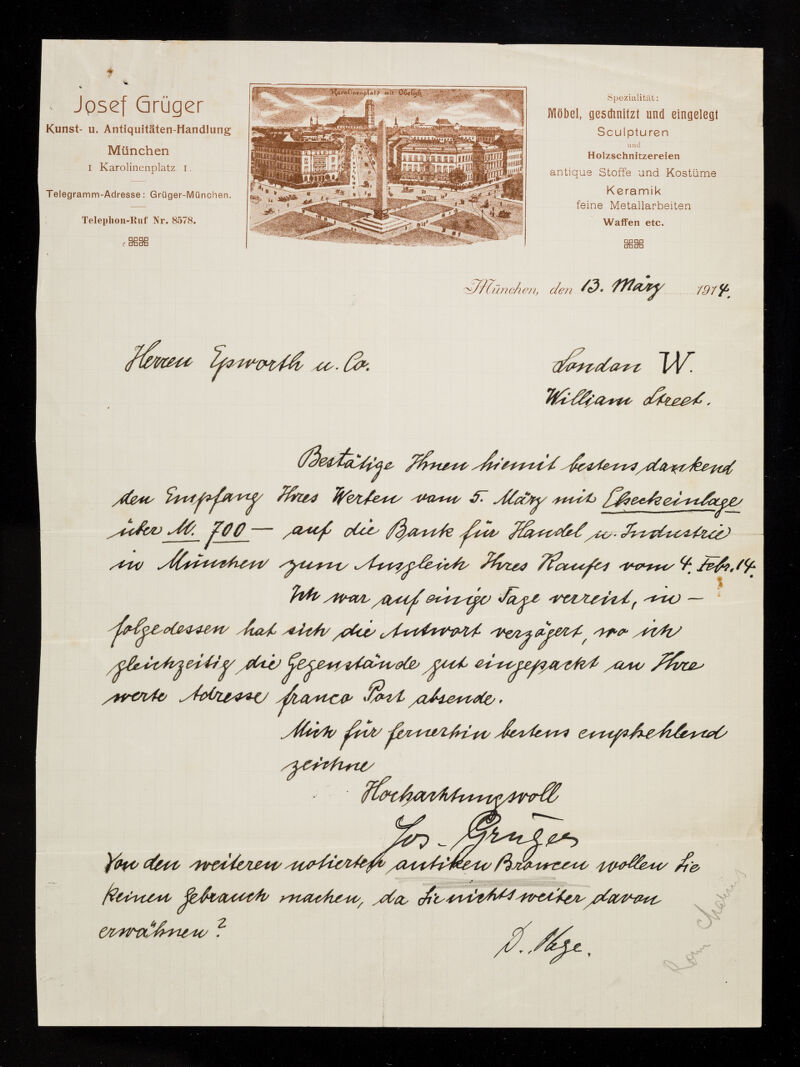 Josef Grüger
Kunst- u. Antiquitäten-Handlung
München
1 Karolinenplatz 1
Telegramm-Adresse: Grüger-München.
Telephon-Ruf Nr. 8578.
Karolinenplatz mit Obelisk
Spezialität:
Möbel, geschnitzt und eingelegt
Sculpturen
und
Holzschnitzereien
antique Stoffe und Kostüme
Keramik
feine Metallarbeiten
Waffen etc.
München, den 13. März 1914.
Herren Epworth u. Co.
London W.
William Street.
Bestätige Ihnen hiemit bestens dankend
den Empfang Ihres Werten vom 5. März mit Checkeinlage
über M. 700 — auf die Bank für Handel u. Industrie
in München zum Ausgleich Ihres Kaufes vom 4. Febr. 14.
Ich war auf einige Tage verreist, in-
folgedessen hat sich die Antwort verzögert, wo ich
gleichzeitig die Gegenstände gut eingepackt an Ihre
werte Adresse franco Post absende.
Mich für fernerhin bestens empfehlend
zeichne
Hochachtungsvoll
Jos. Grüger
Von den weiteren notierten antiken Broncen wollen Sie
keinen Gebrauch machen, da Sie nichts weiter davon
erwähnen?
D. Obge.